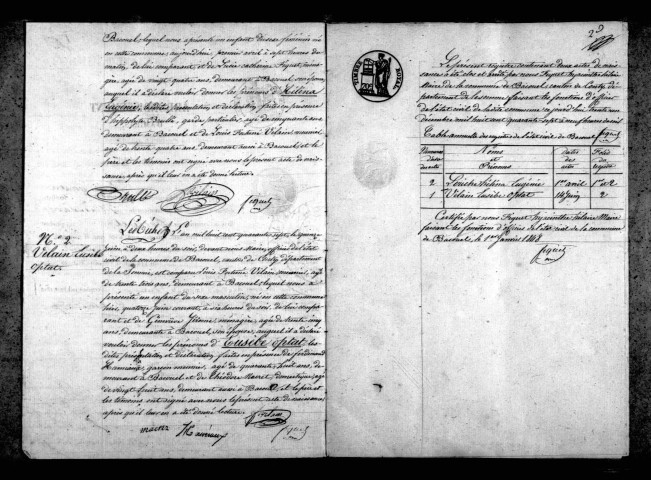 Bacouel, lequel nous a présenté un enfant du sexe féminin né
en cette commune, aujourd'hui, premier avril à sept heures du
matin, de lui comparant et de
agée de vingt quatre ans, demeurant à Bacouel son épouse,
auquel il a déclaré vouloir donner les prénoms d'Helena
Eugénie, lesdites présentation et déclaration faites en présence
d'hippolyte Brulle, garde particulier, agé de cinquante ans
demeurant à Bacouel et de Louis Antoine Vilain meunier,
agé de trente quatre ans, demeurant aussi à Bacouel et le
père et les témoins ont signé avec nous le présent acte de nais-
sance après qu'il leur en a été donné lecture.
Brulle Vilain
Jiquel
N.° 2
Vilain Eusèbe
optat
L'an mil huit cent quarante sept, le quinze
juin à deux heures du soir, devant nous Maire, officier de
l'état civil de la commune de Bacouel, canton de Conty, département
de la Somme, est comparu Louis Antoine Vilain, meunier, agé
de trente trois ans, demeurant à Bacouel, lequel nous a
présenté un enfant du sexe masculin, né en cette commune
hier, quatorze juin courant, à six heures du soir, de lui compa-
rant et de Geneviève ménagère, agée de trente cinq
ans, demeurant à Bacouel, son épouse, auquel il a déclaré
vouloir donner les prénoms d'Eusèbe optat les
dites présentation et déclaration faites en présence de ferdinand
garçon meunier, agé de quarante huit ans, de-
meurant à Bacouel et de théodore domestique, agé
de vingt huit ans, demeurant aussi à Bacouel et le père et
les témoins ont signé avec nous le présent acte de naissance
après qu'il leur en a été donné lecture.
Vilain
TIMBRE ROYAL
Le présent registre contenant deux actes de nais-
sances a été clos et arrêté par nous
Maire de la commune de Bacouel canton de Conty, dé-
partement de la Somme faisant les fonctions d'officier
de l'état civil de ladite commune aujourd'hui trente un
décembre mil huit cent quarante sept à neuf heures du soir
Table annuelle des registres de l'état civil de Bacouel
Numéros des actes Noms et Prénoms dates des actes Folio du registre
2 Helena Eugénie 1er avril 1er et 2
1 Vilain Eusèbe optat 14 juin 2
Certifié par nous Maire
faisant les fonctions d'officier de l'état civil de la commune
de Bacouel, le 1er Janvier 1848